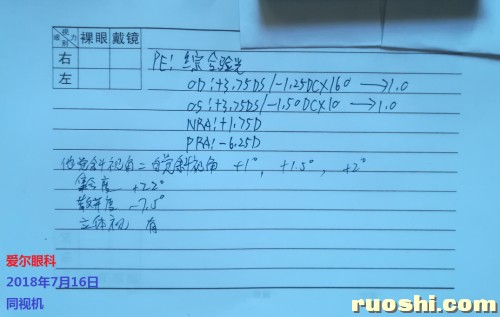 视力 眼别 裸眼 戴镜
右
左
PE: 综合验光
OD:+3.75DS/-1.25DC×160 →1.0
OS:+3.75DS/-1.50DC×10 →1.0
NRA:+1.75D
PRA:-6.25D
他觉斜视角=自觉斜视角 +1°, +1.5°, +2°
集合度 +22°
散开度 -7.5°
立体视: 有
爱尔眼科
2018年7月16日
同视机
ruoshi.com